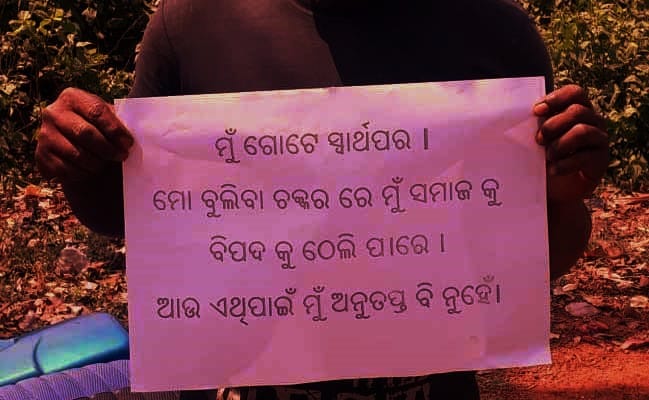 ମୁଁ ଗୋଟେ ସ୍ୱାର୍ଥପର ।
ମୋ ବୁଲିବା ଚକ୍କର ରେ ମୁଁ ସମାଜ କୁ
ବିପଦ କୁ ଠେଲି ପାରେ ।
ଆଉ ଏଥିପାଇଁ ମୁଁ ଅନୁତପ୍ତ ବି ନୁହେଁ।